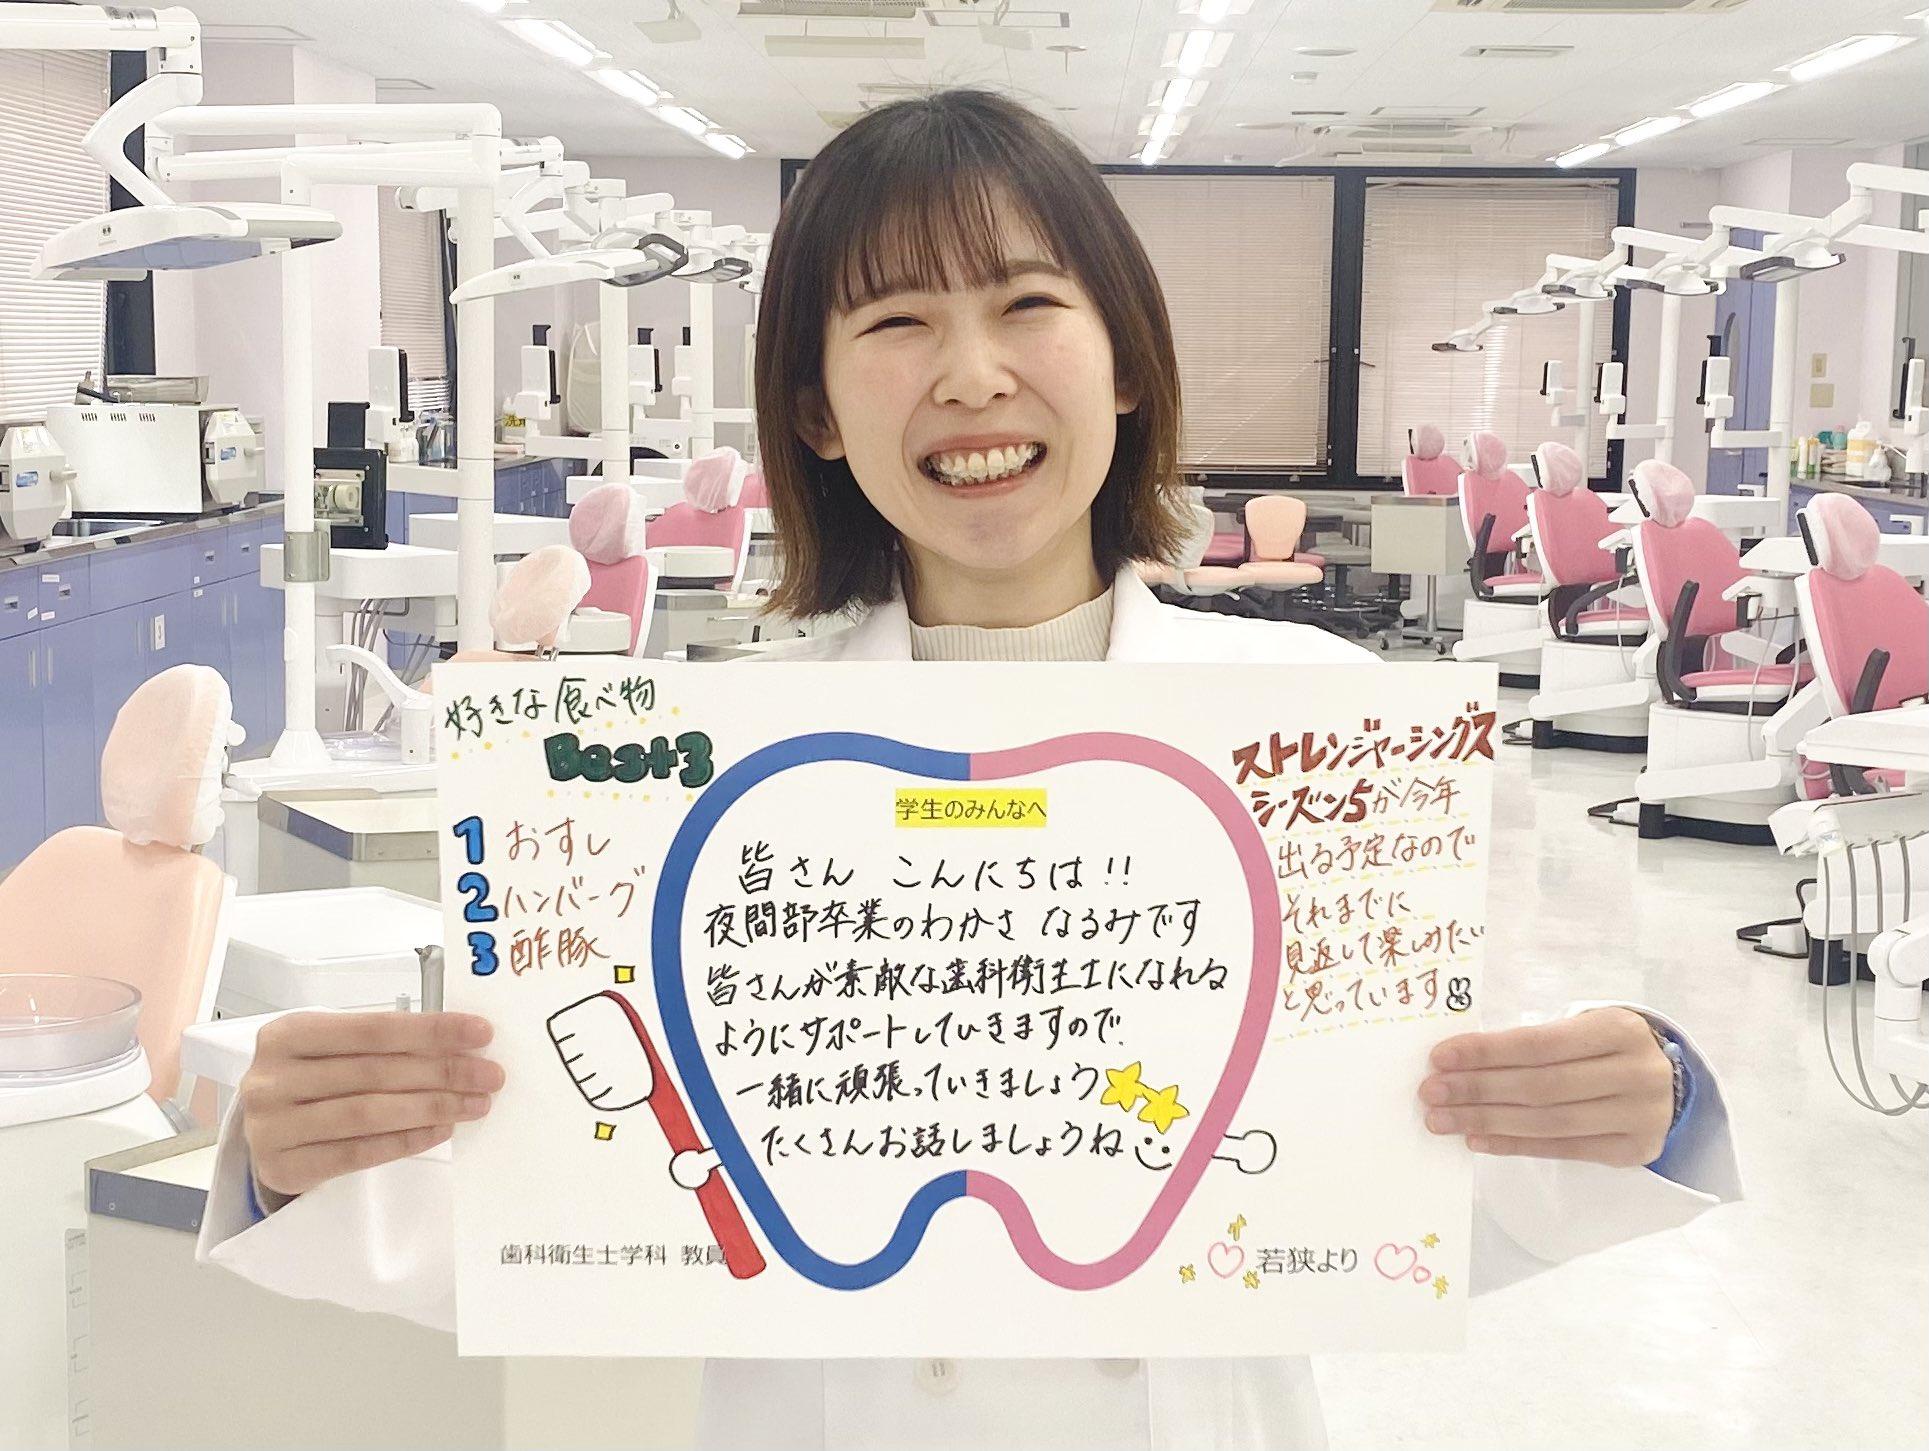 好きな食べ物
Best3
1 おすし
2 ハンバーグ
3 酢豚
学生のみんなへ
皆さん こんにちは!!
夜間部卒業のわかさ なるみです
皆さんが素敵な歯科衛生士になれる
ようにサポートしていきますので
一緒に頑張っていきましょう
たくさんお話しましょうね
ストレンジャーシングス
シーズン5が今年
出る予定なので
それまでに
見返して楽しみたい
と思っています
歯科衛生士学科 教員
若狭より